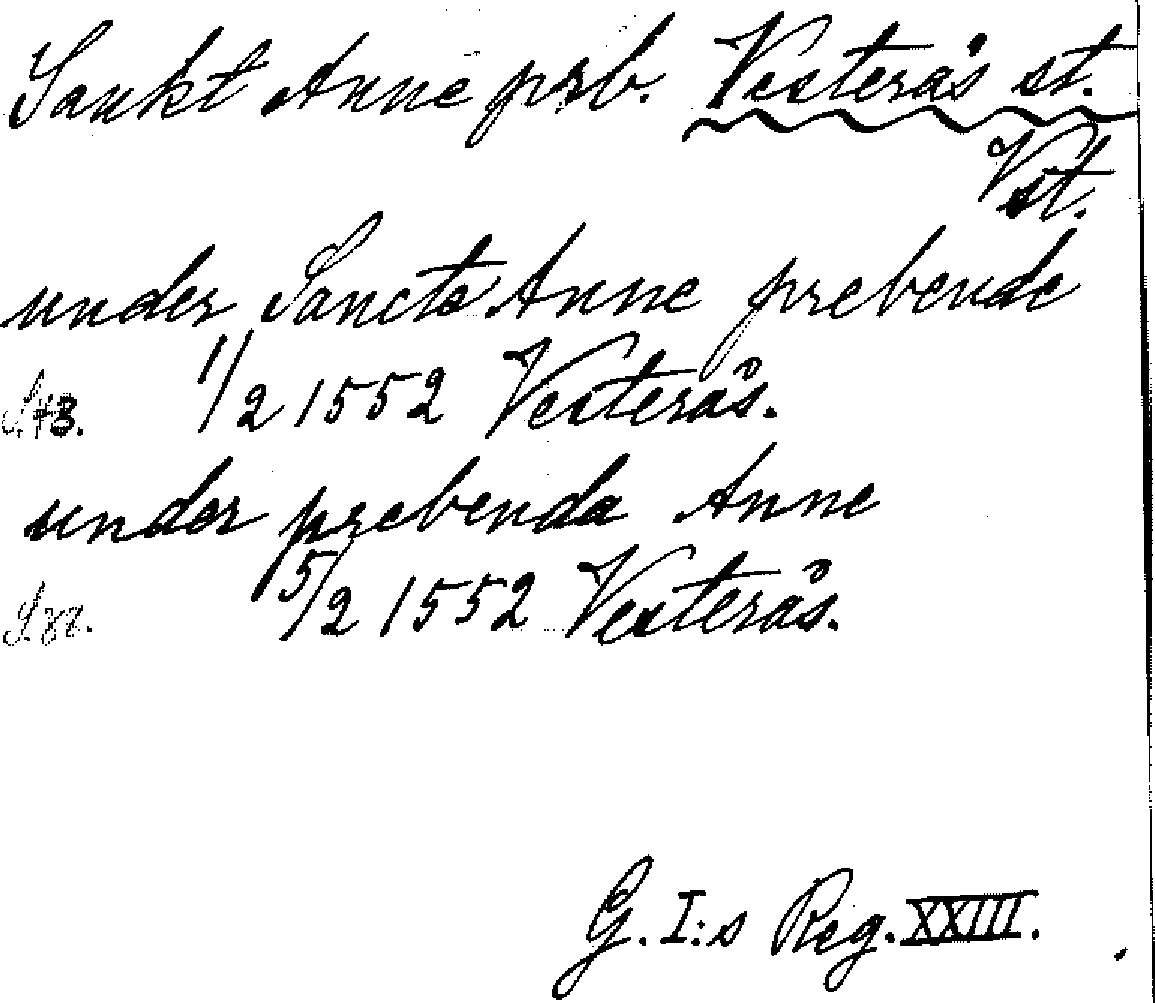 Sankt Anne prb. Vesterås st.
Vst.
under Sancte Anne prebende
S. 73. 1/2 1552 Vesterås.
under prebenda Anne
S 82. 15/2 1552 Vesterås.
G. I:s Reg. XXIII.